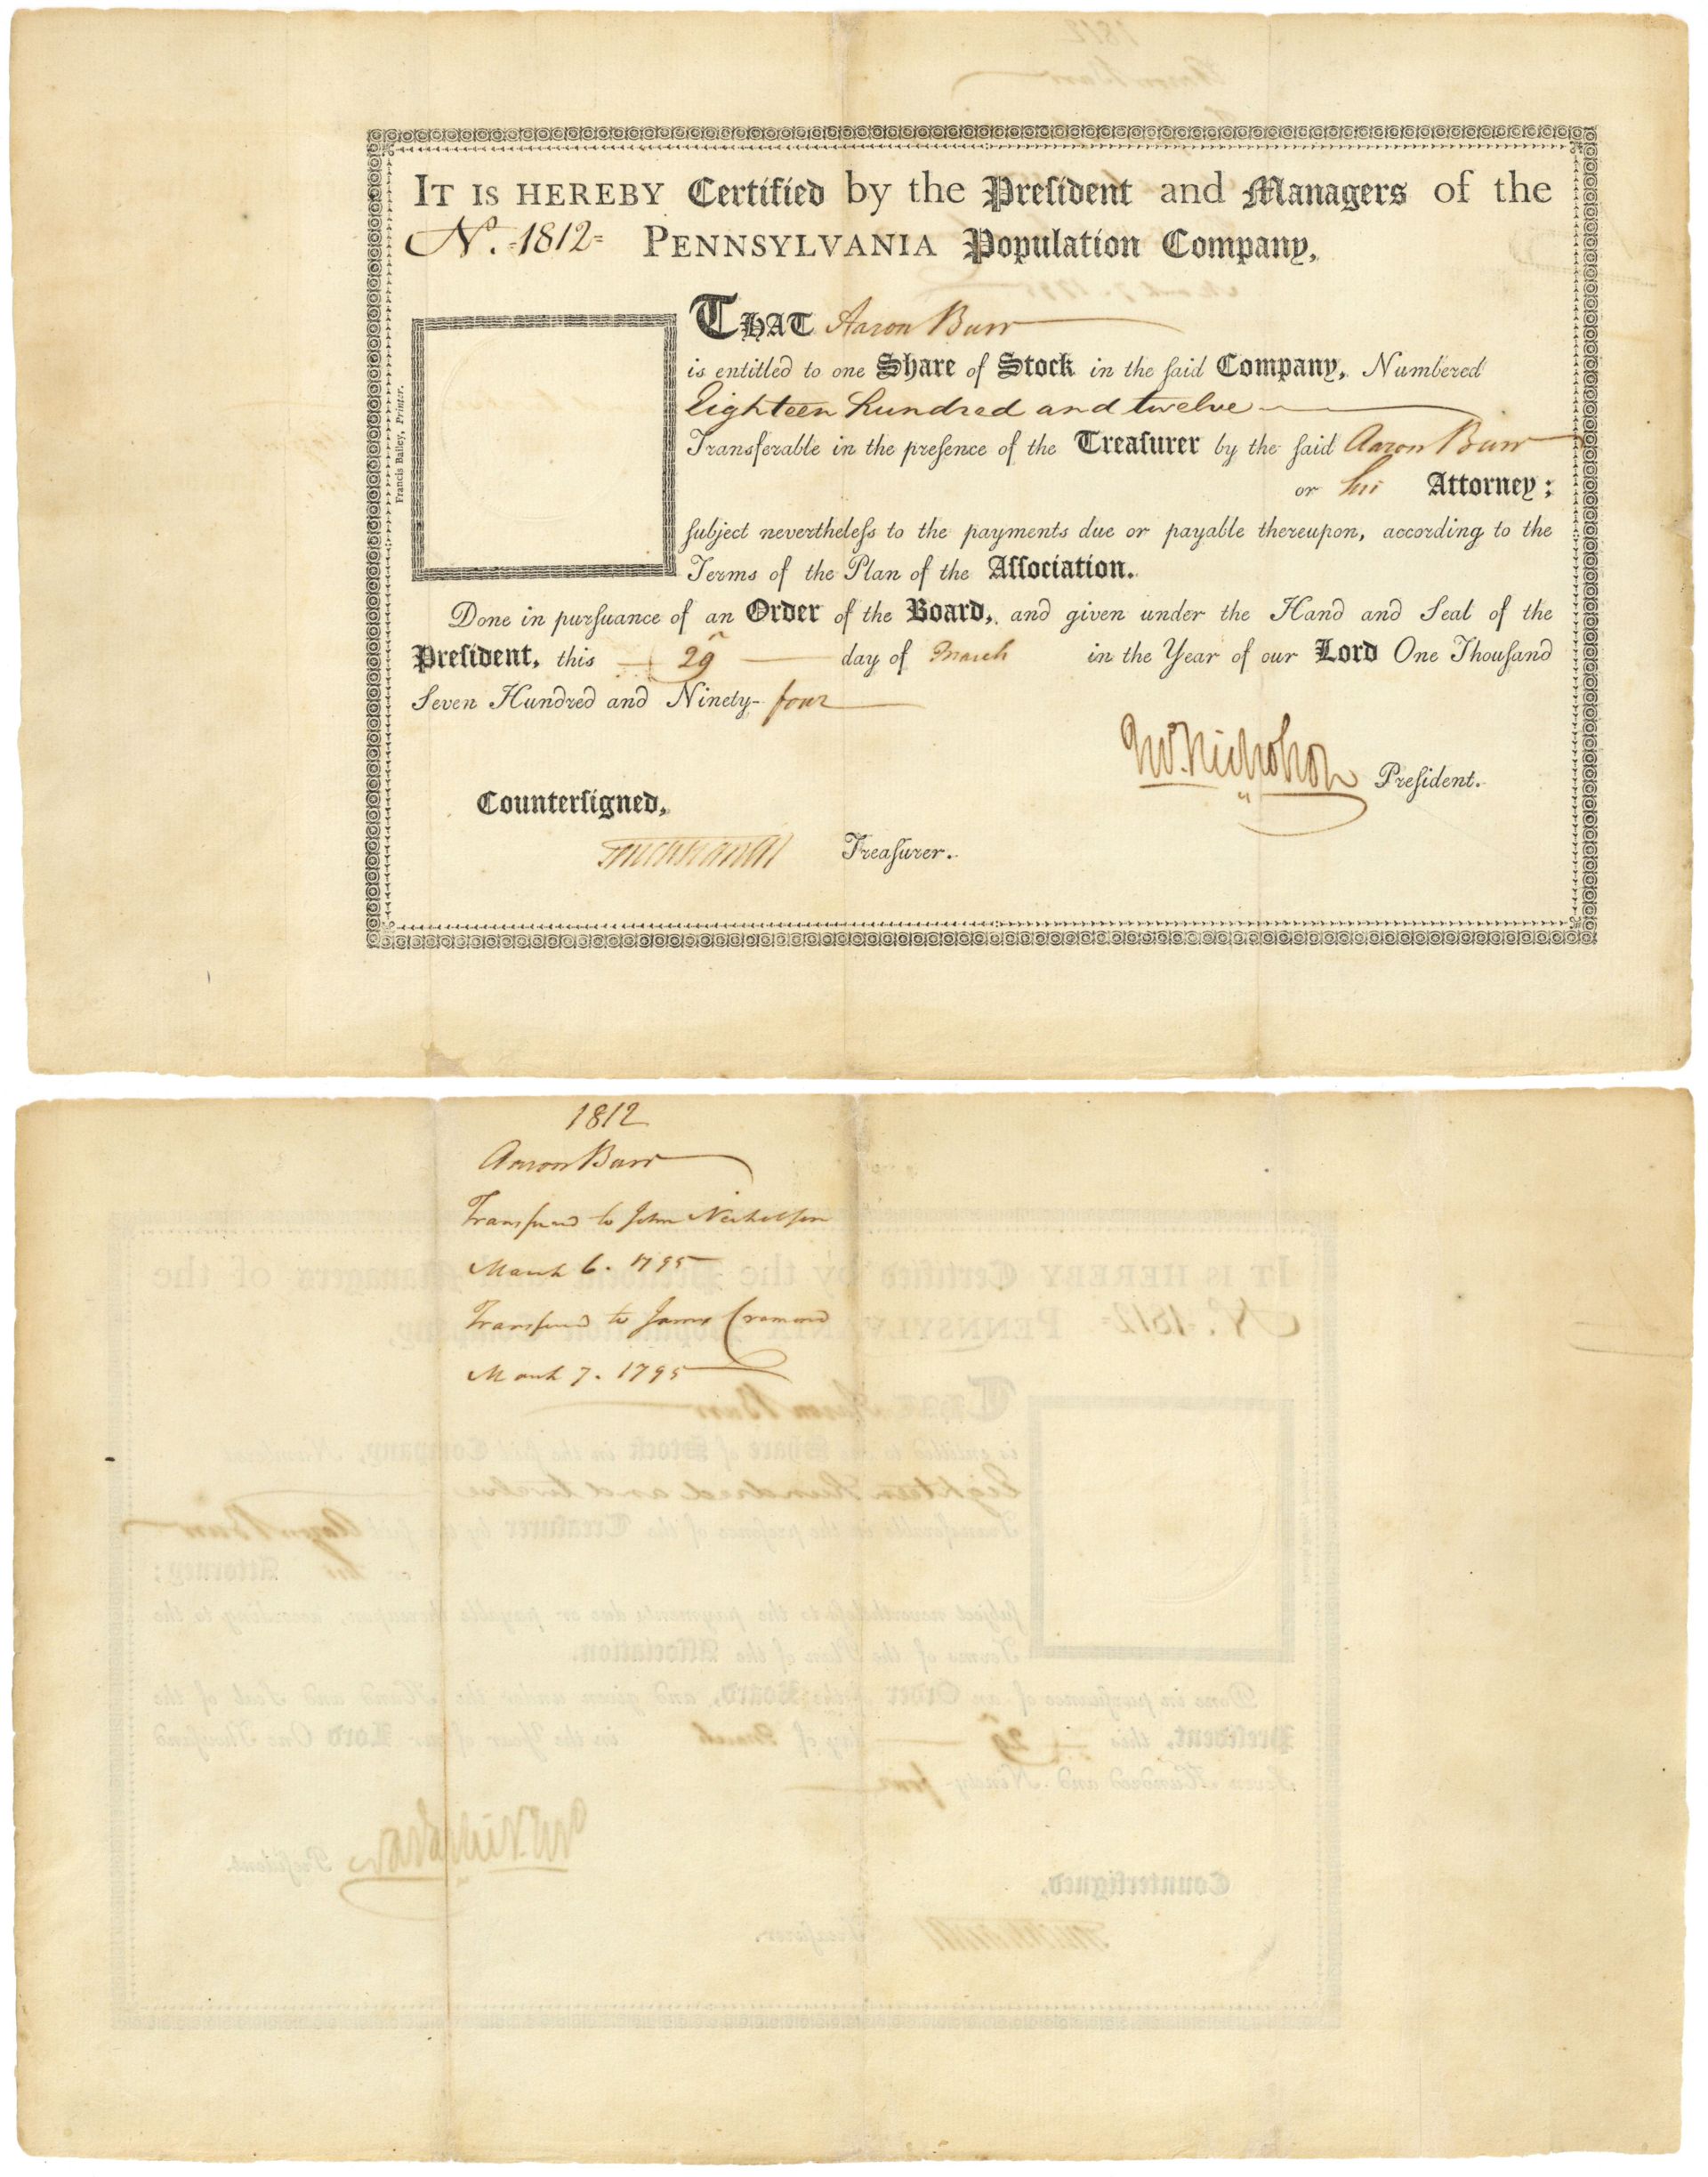 IT IS HEREBY Certified by the Preſident and Managers of the
No. =1812= PENNSYLVANIA Population Company,
THAT Aaron Burr
is entitled to one Share of Stock in the ſaid Company, Numbered
Eighteen hundred and twelve
Transferable in the preſence of the Treaſurer by the ſaid Aaron Burr
or his Attorney;
ſubject nevertheleſs to the payments due or payable thereupon, according to the
Terms of the Plan of the Aſſociation.
Done in purſuance of an Order of the Board, and given under the Hand and Seal of the
Preſident, this 29 day of March in the Year of our Lord One Thouſand
Seven Hundred and Ninety-four
Jno. Nicholson Preſident.
Counterſigned,
Treaſurer.
Francis Bailey, Printer.
1812
Aaron Burr
Transferred to John Nicholson
March 6. 1795
Transferred to James Cramond
March 7. 1795